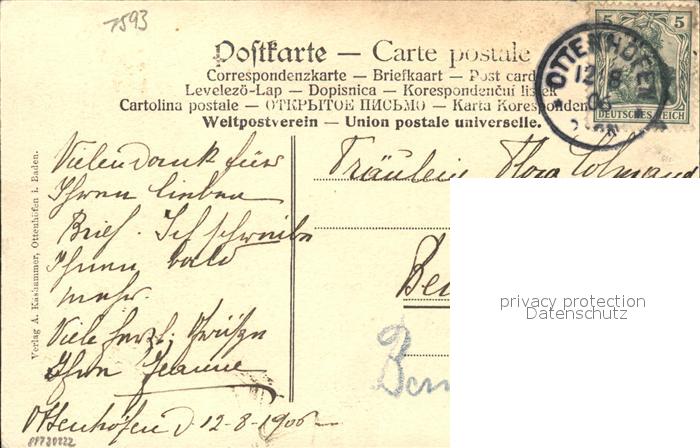 7593
Postkarte — Carte postale
Correspondenzkarte — Briefkaart — Post card
Levelező-Lap — Dopisnica — Korespondenční listek
Cartolina postale — ОТКРЫТОЕ ПИСЬМО — Karta Koresponden
Weltpostverein — Union postale universelle.
5 5
DEUTSCHES REICH
OTTENHÖFEN
12 8
06
Vielen dank für
Ihren lieben
Brief. Ich schreibe
Ihnen bald
mehr.
Viele herzl. Grüsze
Ihre Jeanne
Ottenhöfen d 12-8-1906
Fräulein Flora
Be
Bern
Verlag A. Kashammer, Ottenhöfen i. Baden.
privacy protection
Datenschutz